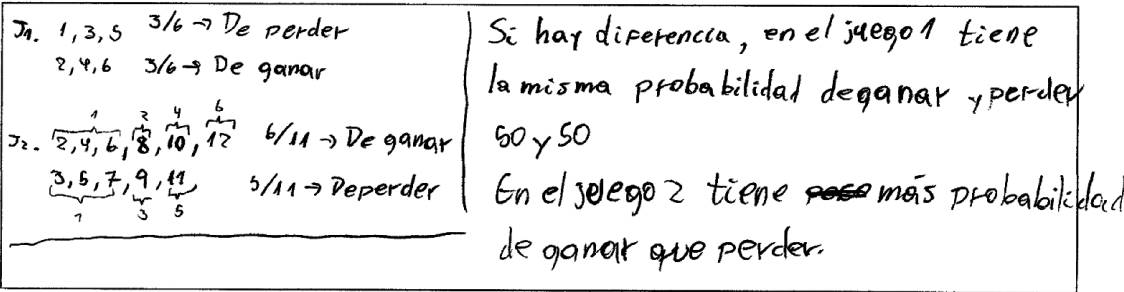 J1. 1, 3, 5 3/6 → De perder
2, 4, 6 3/6 → De ganar
1 2 4 6
J2. 2, 4, 6, 8, 10, 12 6/11 → De ganar
3, 5, 7, 9, 11, 5/11 → Deperder
1 3 5
Si hay diferencia, en el juego 1 tiene
la misma probabilidad de ganar y perder
50 y 50
En el juego 2 tiene más probabilidad
de ganar que perder.